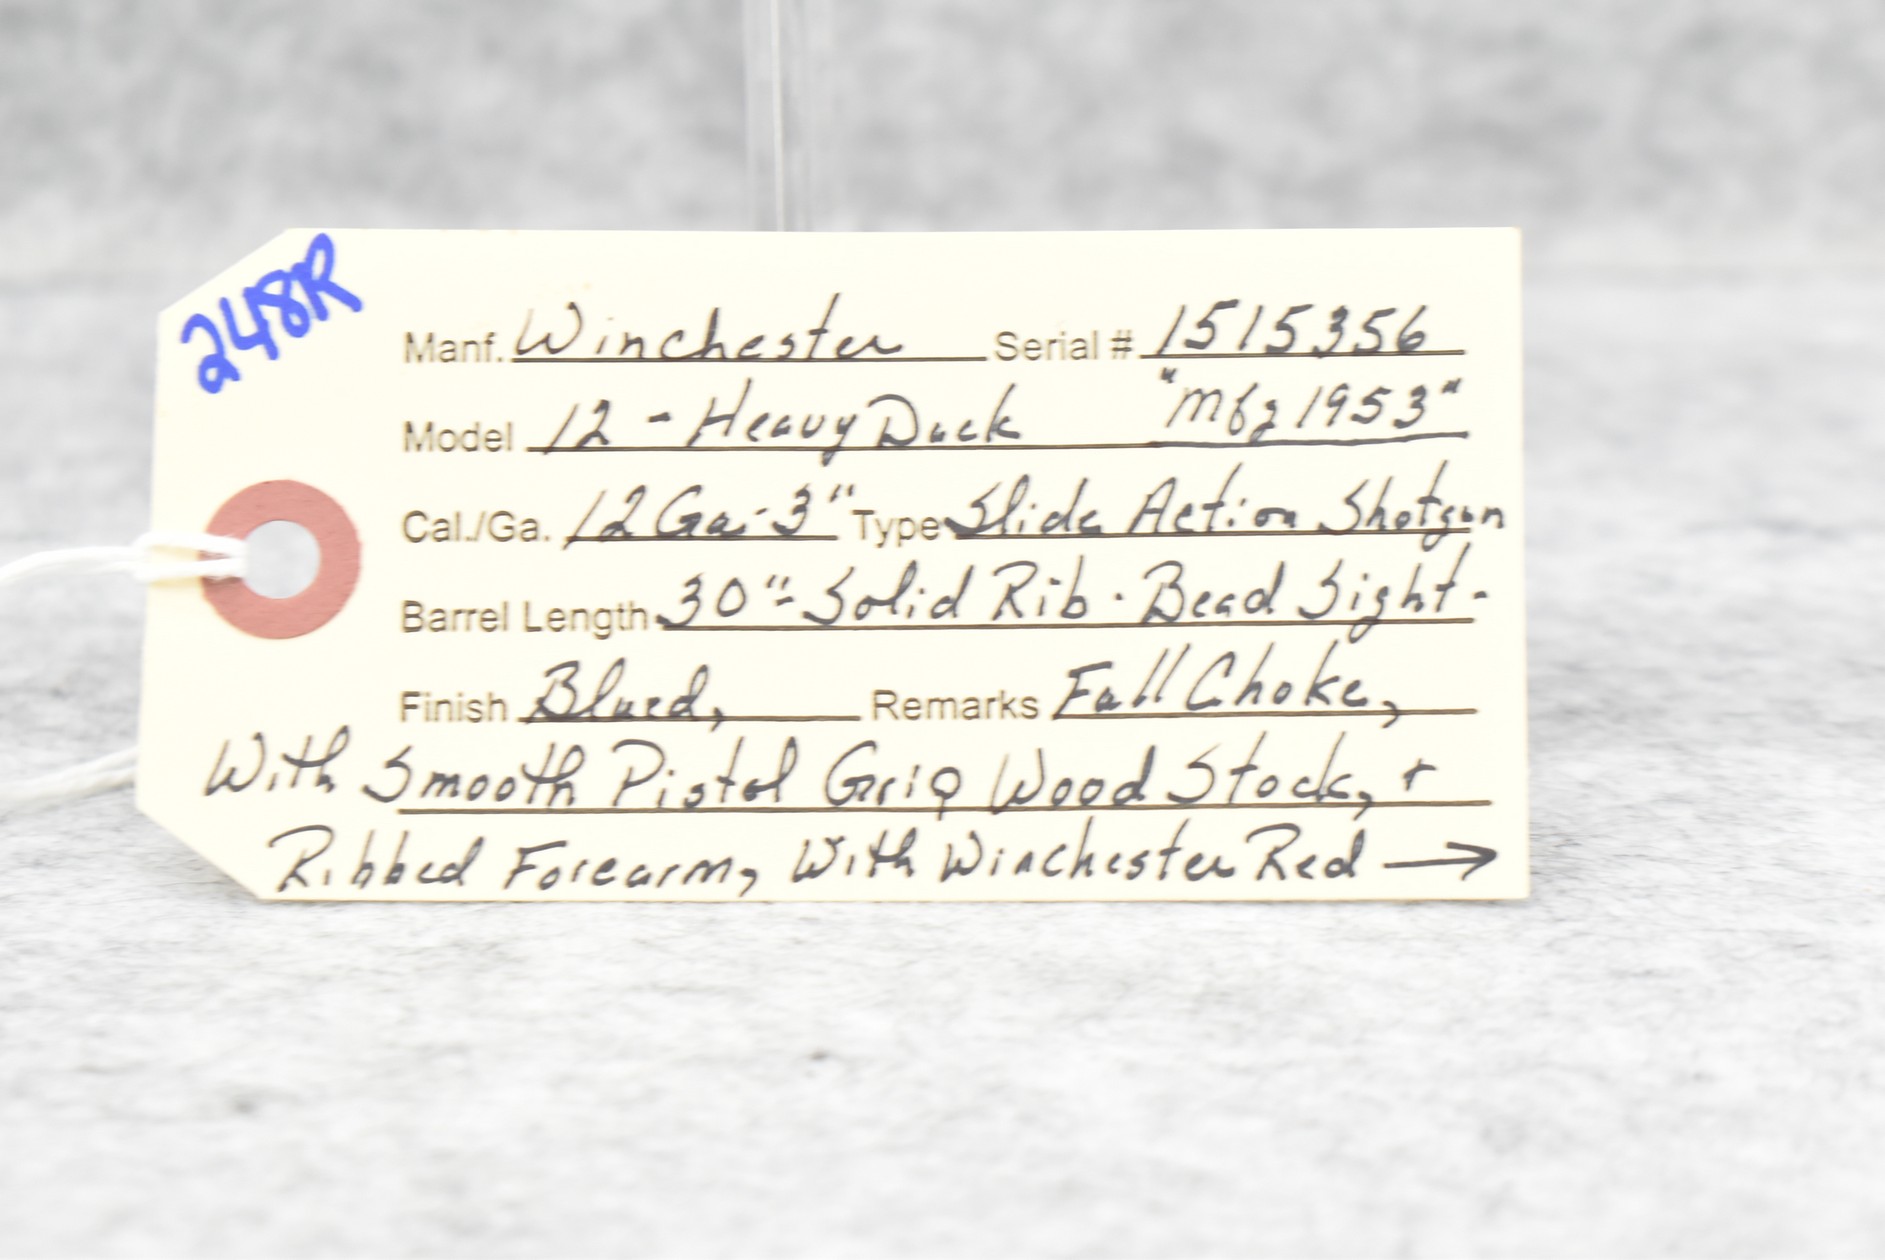 248R
Manf. Winchester Serial # 1515356
Model 12 - Heavy Duck "Mfg 1953"
Cal./Ga. 12 Ga - 3" Type Slide Action Shotgun
Barrel Length 30" - Solid Rib - Bead Sight -
Finish Blued, Remarks Full Choke,
With Smooth Pistol Grip Wood Stock, +
Ribbed Forearm, With Winchester Red →